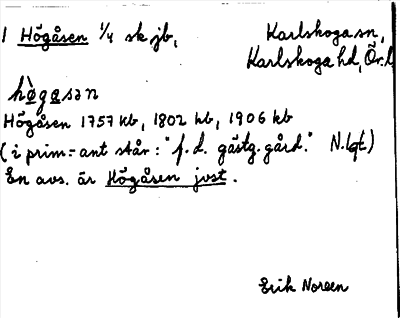 1 Högåsen 1/4 sk jb, Karlskoga sn,
Karlskoga hd, Ör. l
högåsən
Högåsen 1757 kb, 1802 kb, 1906 kb
(i prim.-ant står: "f.d. gästg.gård." N. Lqt)
En avs. är Högåsen just.
Erik Noreen